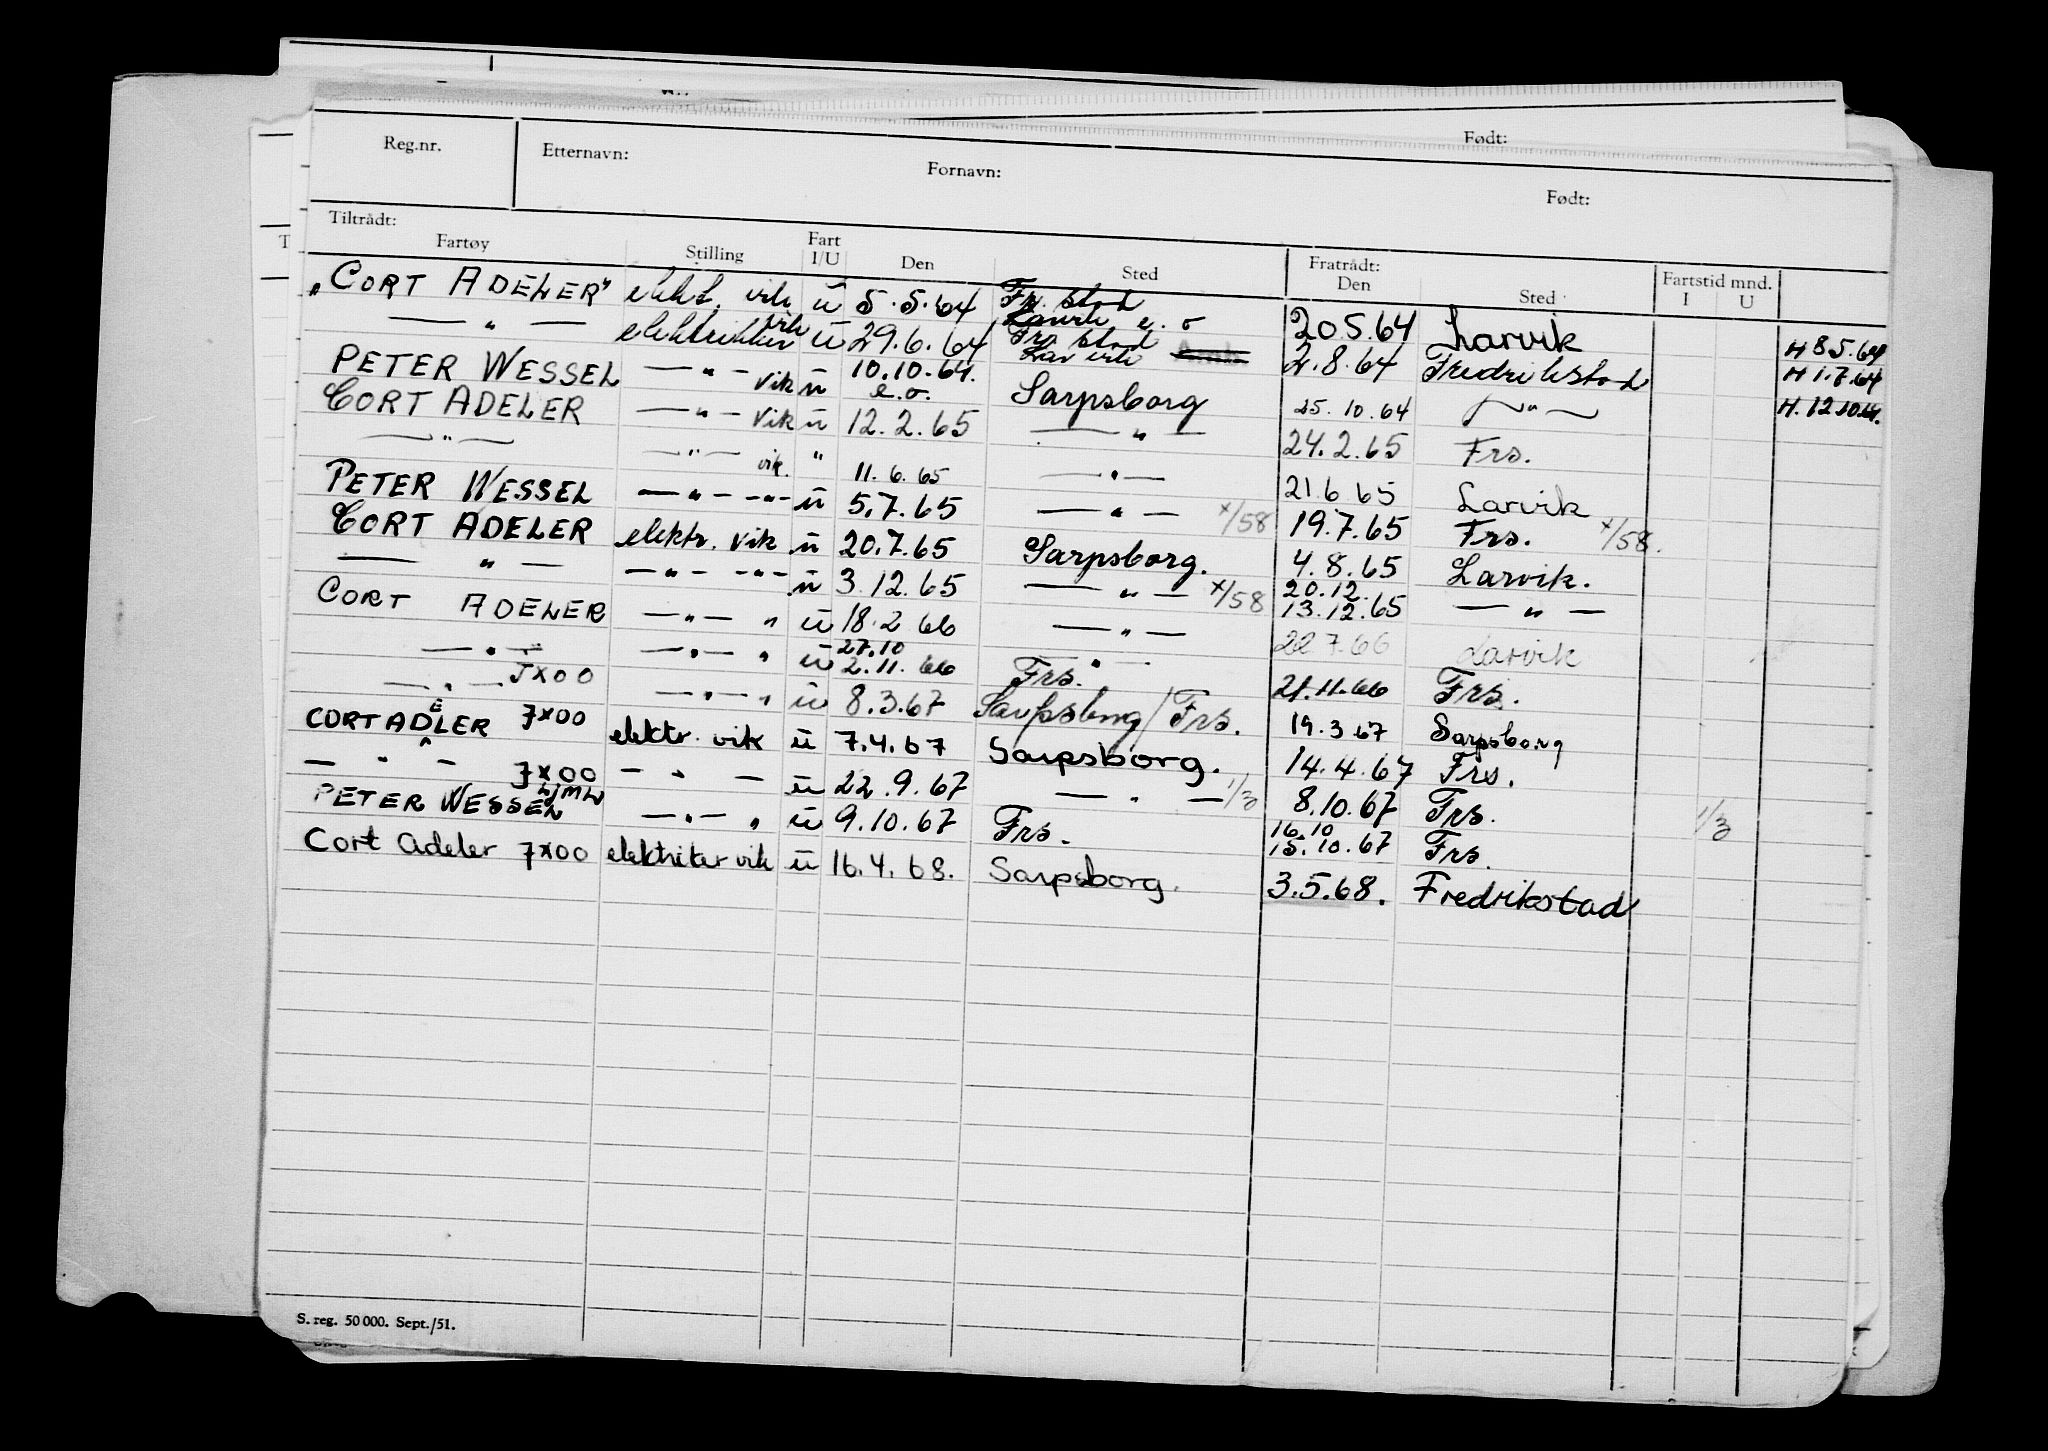 Født:
Reg.nr. Etternavn: Fornavn: Født:
Tiltrådt: Fratrådt:
Fartøy Stilling Fart I/U Den Sted Den Sted Fartstid mnd. I U
"CORT ADELER" elekt. vik ū 5.5.64 Fr.stad Larvik e.o 20.5.64 Larvik H 8 5.64
— " — elektriker vik ū 29.6.64 Fr.stad Larvik 2.8.64 Fredrikstad H 1.7.64
PETER WESSEL — " — vik ū 10.10.64. e.o. Sarpsborg 25.10.64 — " — H. 12.10.64.
CORT ADELER — " — vik ū 12.2.65 — " — 24.2.65 Frs.
— " — — " — vik. " 11.6.65 — " — 21.6.65 Larvik
PETER WESSEL — " — — " — ū 5.7.65 — " — x/58 19.7.65 Frs. x/58.
CORT ADELER elektr. vik ū 20.7.65 Sarpsborg. 4.8.65 Larvik.
— " — — " — — " — ū 3.12.65 — " — x/58 20.12. 13.12.65 — " —
CORT ADELER — " — " ū 18.2 66 — " — 22 7.66 Larvik
— " — — " — " ū 27.10 2.11.66 Frs. " 21.11.66 Frs.
— " — JX00 — " — " ū 8.3.67 Sarpsborg/Frs. 19.3 67 Sarpsborg
CORT ADELER JX00 elektr. vik ū 7.4.67 Sarpsborg. 14.4.67 Frs.
— " — JX00 — " — ū 22.9.67 — " — 1/3 8.10.67 Frs. 1/3
PETER WESSEL LJMW — " — " ū 9.10.67 Frs. 16.10 15.10.67 Frs.
Cort Adeler JX00 elektriker vik ū 16.4.68. Sarpsborg. 3.5.68. Fredrikstad
S. reg. 50 000. Sept./51.